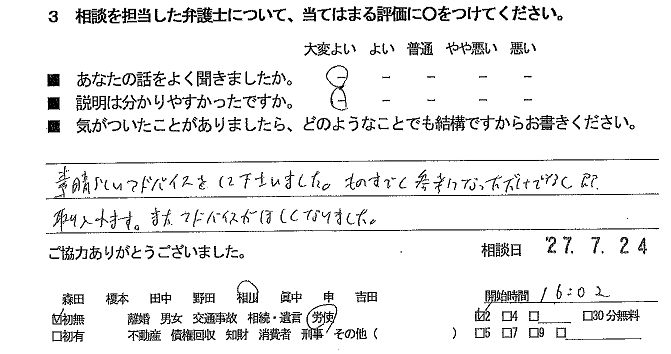 3 相談を担当した弁護士について、当てはまる評価に〇をつけてください。
大変よい よい 普通 やや悪い 悪い
■ あなたの話をよく聞きましたか。 － － － － －
■ 説明は分かりやすかったですか。 － － － － －
■ 気がついたことがありましたら、どのようなことでも結構ですからお書きください。
素晴らしいアドバイスを 下さいました。ものすごく参考になっただけでなく 即
取り入れます。またアドバイスがほしくなりました。
ご協力ありがとうございました。 相談日 '27. 7. 24
森田 榎本 田中 野田 相山 眞中 申 吉田 開始時間 16:02
☑初無 離婚 男女 交通事故 相続・遺言 労使 ☑2 □4 □ □30分無料
□初有 不動産 債権回収 知財 消費者 刑事 その他( ) □5 □7 □9 □